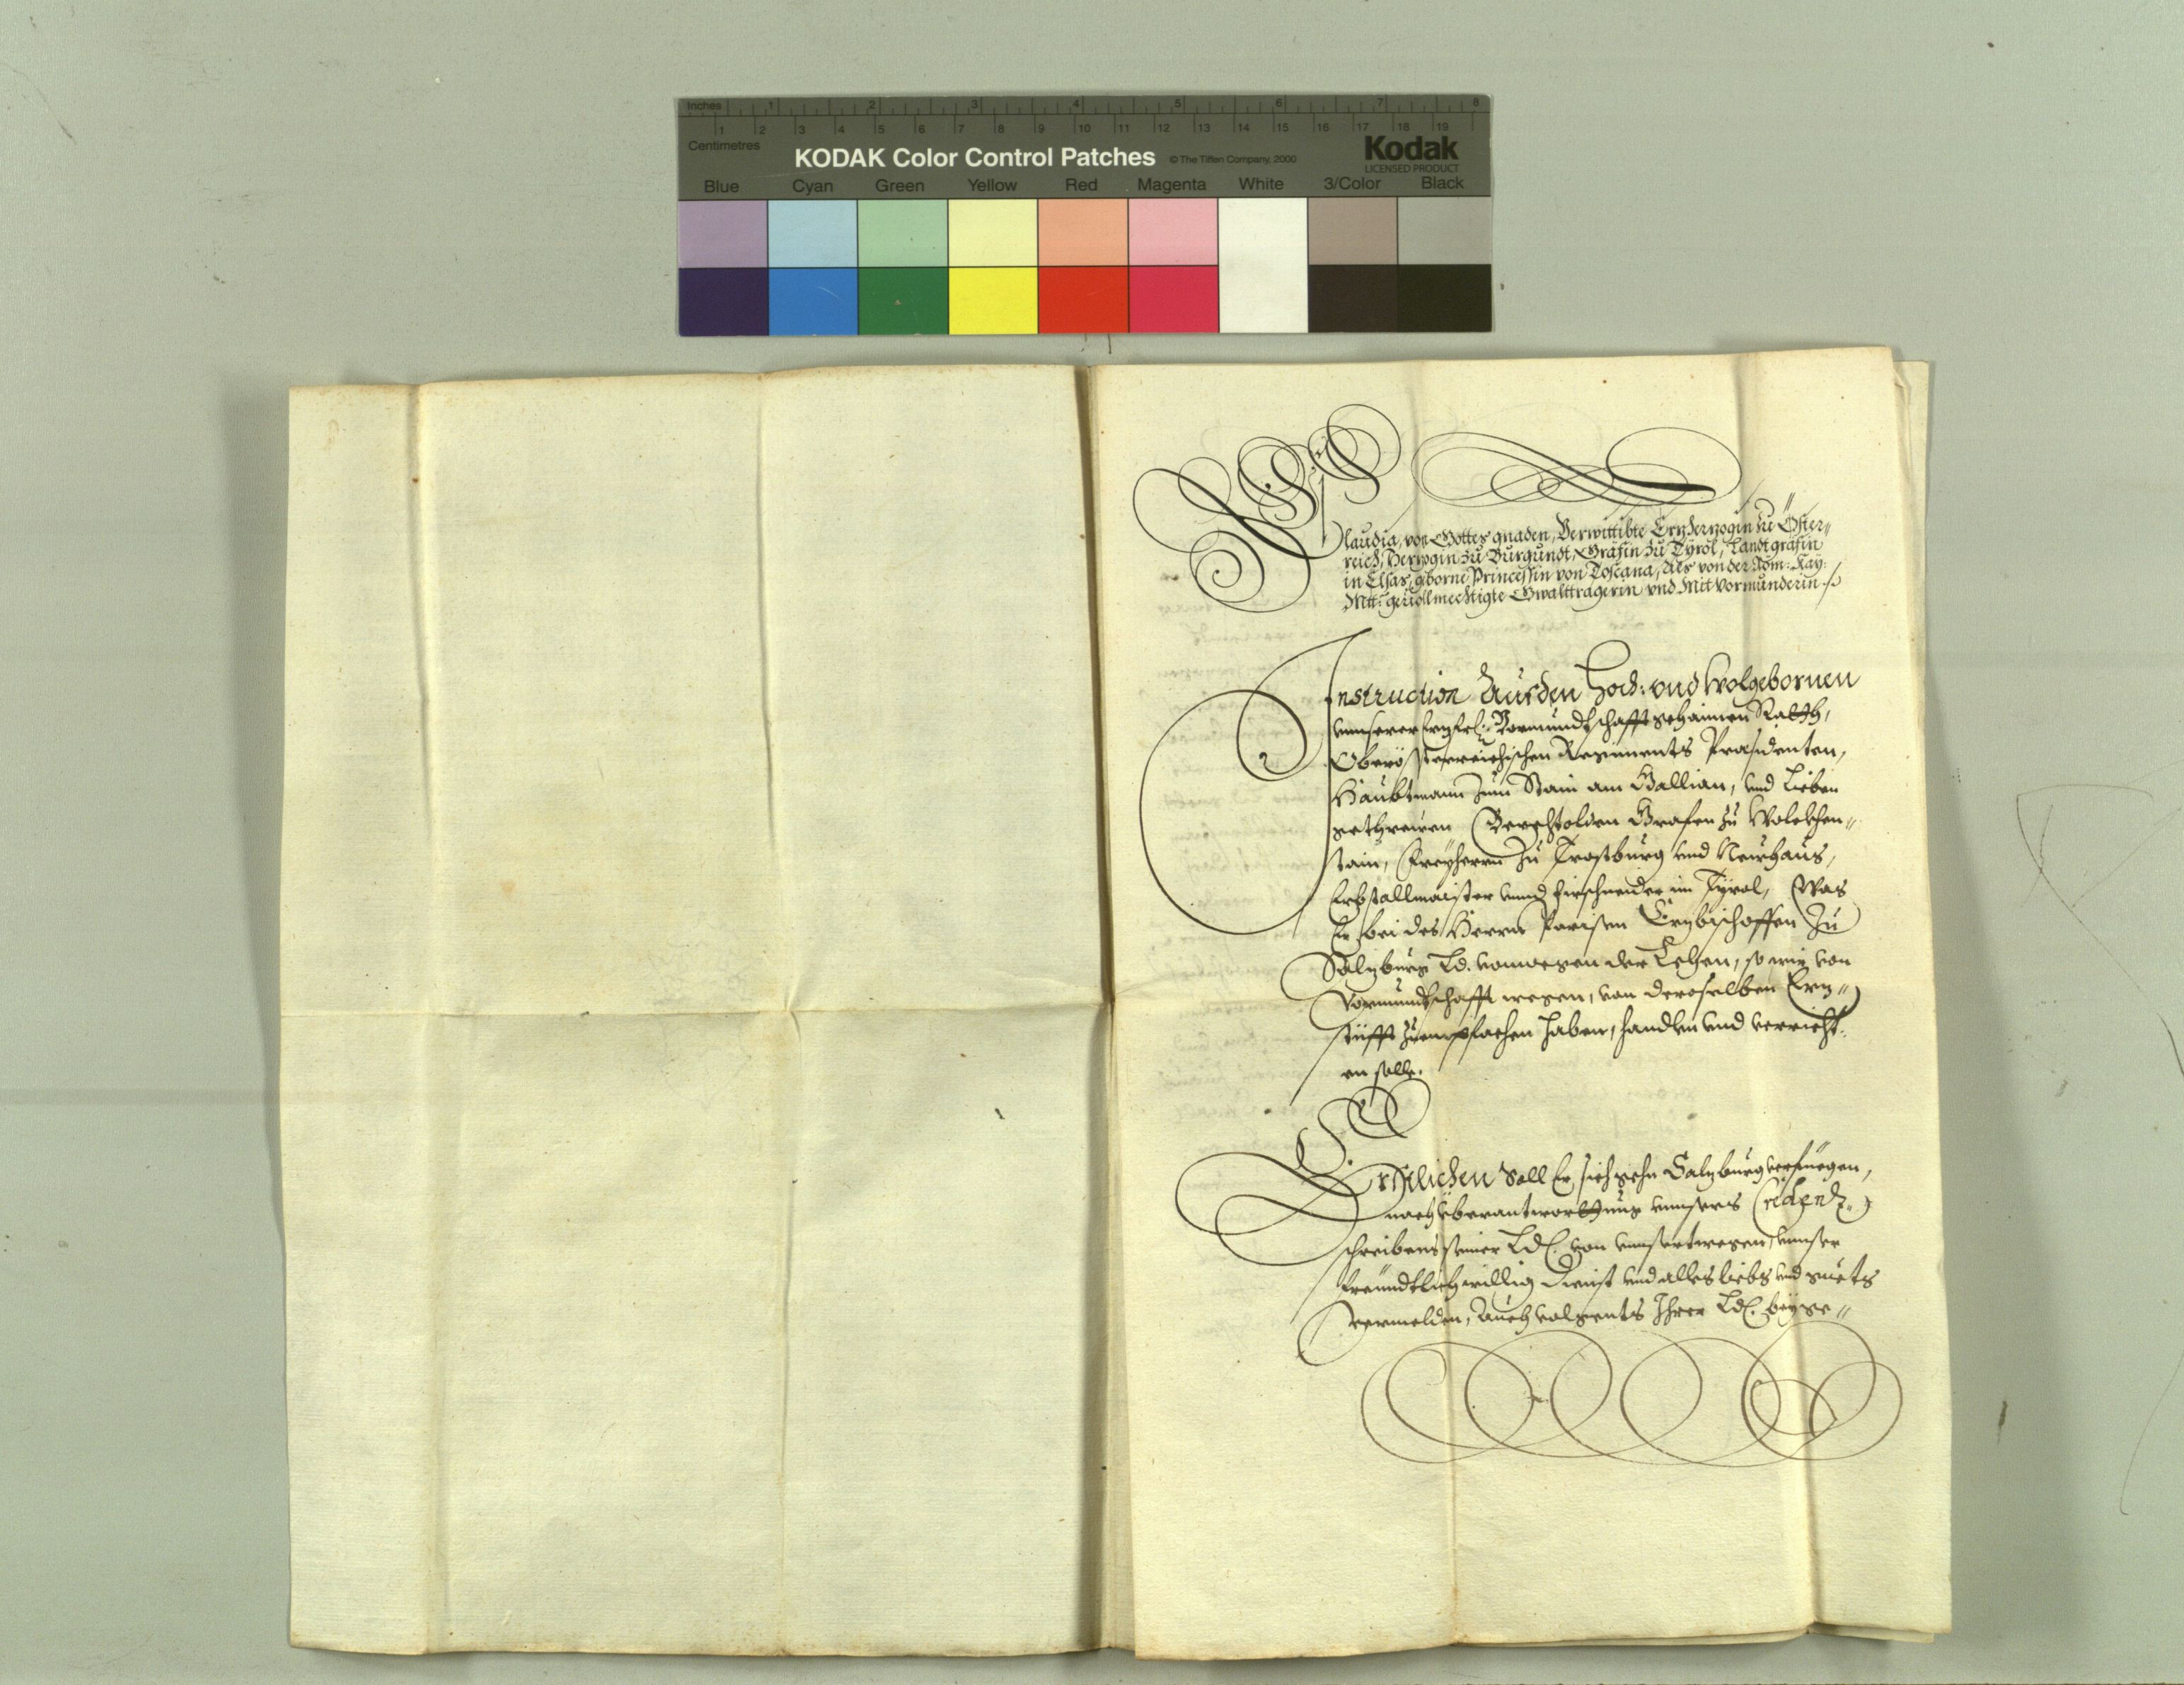 Inches 1 2 3 4 5 6 7 8
1 2 3 4 5 6 7 8 9 10 11 12 13 14 15 16 17 18 19
Centimetres
KODAK Color Control Patches © The Tiffen Company, 2000 Kodak
LICENSED PRODUCT
Blue Cyan Green Yellow Red Magenta White 3/Color Black
Claudia, von Gottes gnaden, Verwittibte Ertzhertzogin zu Öster„
reich, Hertzogin zu Burgundt, Gräfin zu Tyrol, Landtgräfin
in Elsas, geborne Princessin von Toscana, Als von der Röm: Kay:
Mtt: gevollmechtigte Gwalttragerin vnd Mit Vormunderin
Instruction Auf den Hoch: vnd Wolgebornen
vnnserer Vormundtschafft gehaimen Rath,
Oberösterreichischen Regiments Praesidenten,
Haubtmann zum Stain am Gallian, vnd Lieben
gethrewen Berchtolden Grafen zu Wolckhen„
stain, Freyherrn zu Trostburg vnd Neuhaus,
Erbstallmaister vnnd fürschneider in Tyrol, Was
Er bei des Herrn Parisen Ertzbischoffen zu
Saltzburg Ld. vonwegen der Lehen, so wir von
Vormundtschafft wegen, von deroselben Ertz„
stüfft zuempfachen haben, handlen vnd verricht„
en solle.
Erstlichen Soll Er sich gehn Saltzburg verfuegen,
nach Überantworttung vnnsers Credentz„
schreibens seiner Ld. von vnnsertwegen vnnser
freundtlich willig Dienst vnd alles liebs vnd guets
vermelden, Auch volgents Ihrer Ld. beyge„